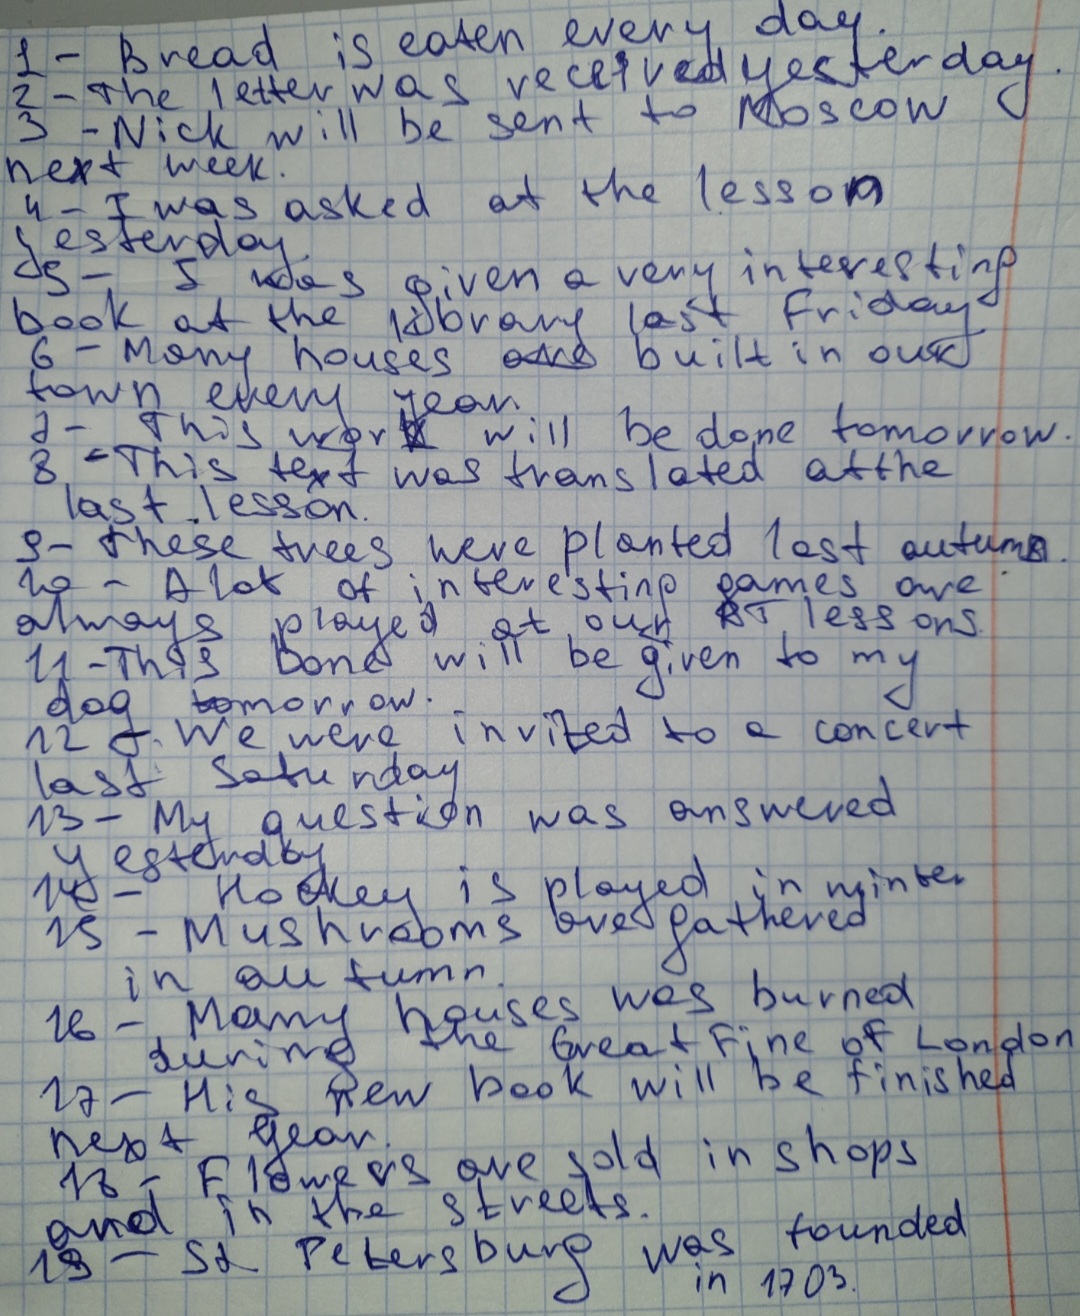 1 - Bread is eaten every day.
2 - The letter was received yesterday.
3 - Nick will be sent to Moscow
next week.
4 - I was asked at the lesson
yesterday
5 - I was given a very interesting
book at the library last Friday
6 - Many houses are built in our
town every year.
7 - This work will be done tomorrow.
8 - This text was translated at the
last lesson.
9 - These trees were planted last autumn.
10 - A lot of interesting games are
always played at our lessons.
11 - This bone will be given to my
dog tomorrow.
12 - We were invited to a concert
last Saturday
13 - My question was answered
yesterday
14 - Hockey is played in winter
15 - Mushrooms are gathered
in autumn.
16 - Many houses was burned
during the Great Fire of London
17 - His new book will be finished
next year.
18 - Flowers are sold in shops
and in the streets.
19 - St Petersburg was founded
in 1703.